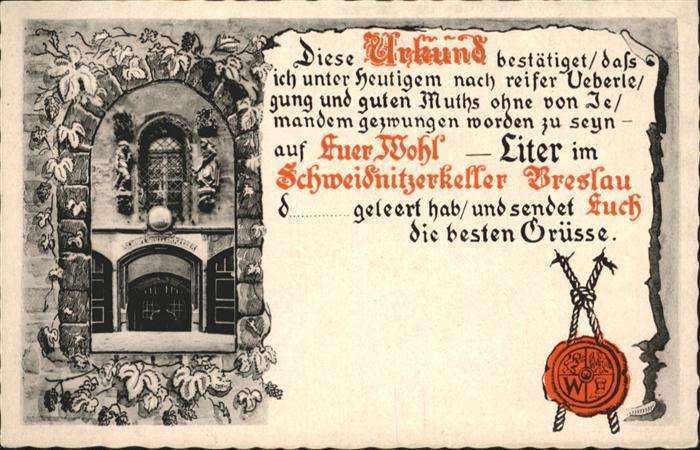 Diese Urkund bestätiget/ daſs
ich unter Heutigem nach reifer Ueberle/
gung und guten Muths ohne von Je/
mandem gezwungen worden zu seyn –
auf Euer Wohl — Liter im
Schweidnitzerkeller Breslau
d............ geleert hab/ und sendet Euch
die besten Grüsse.
W